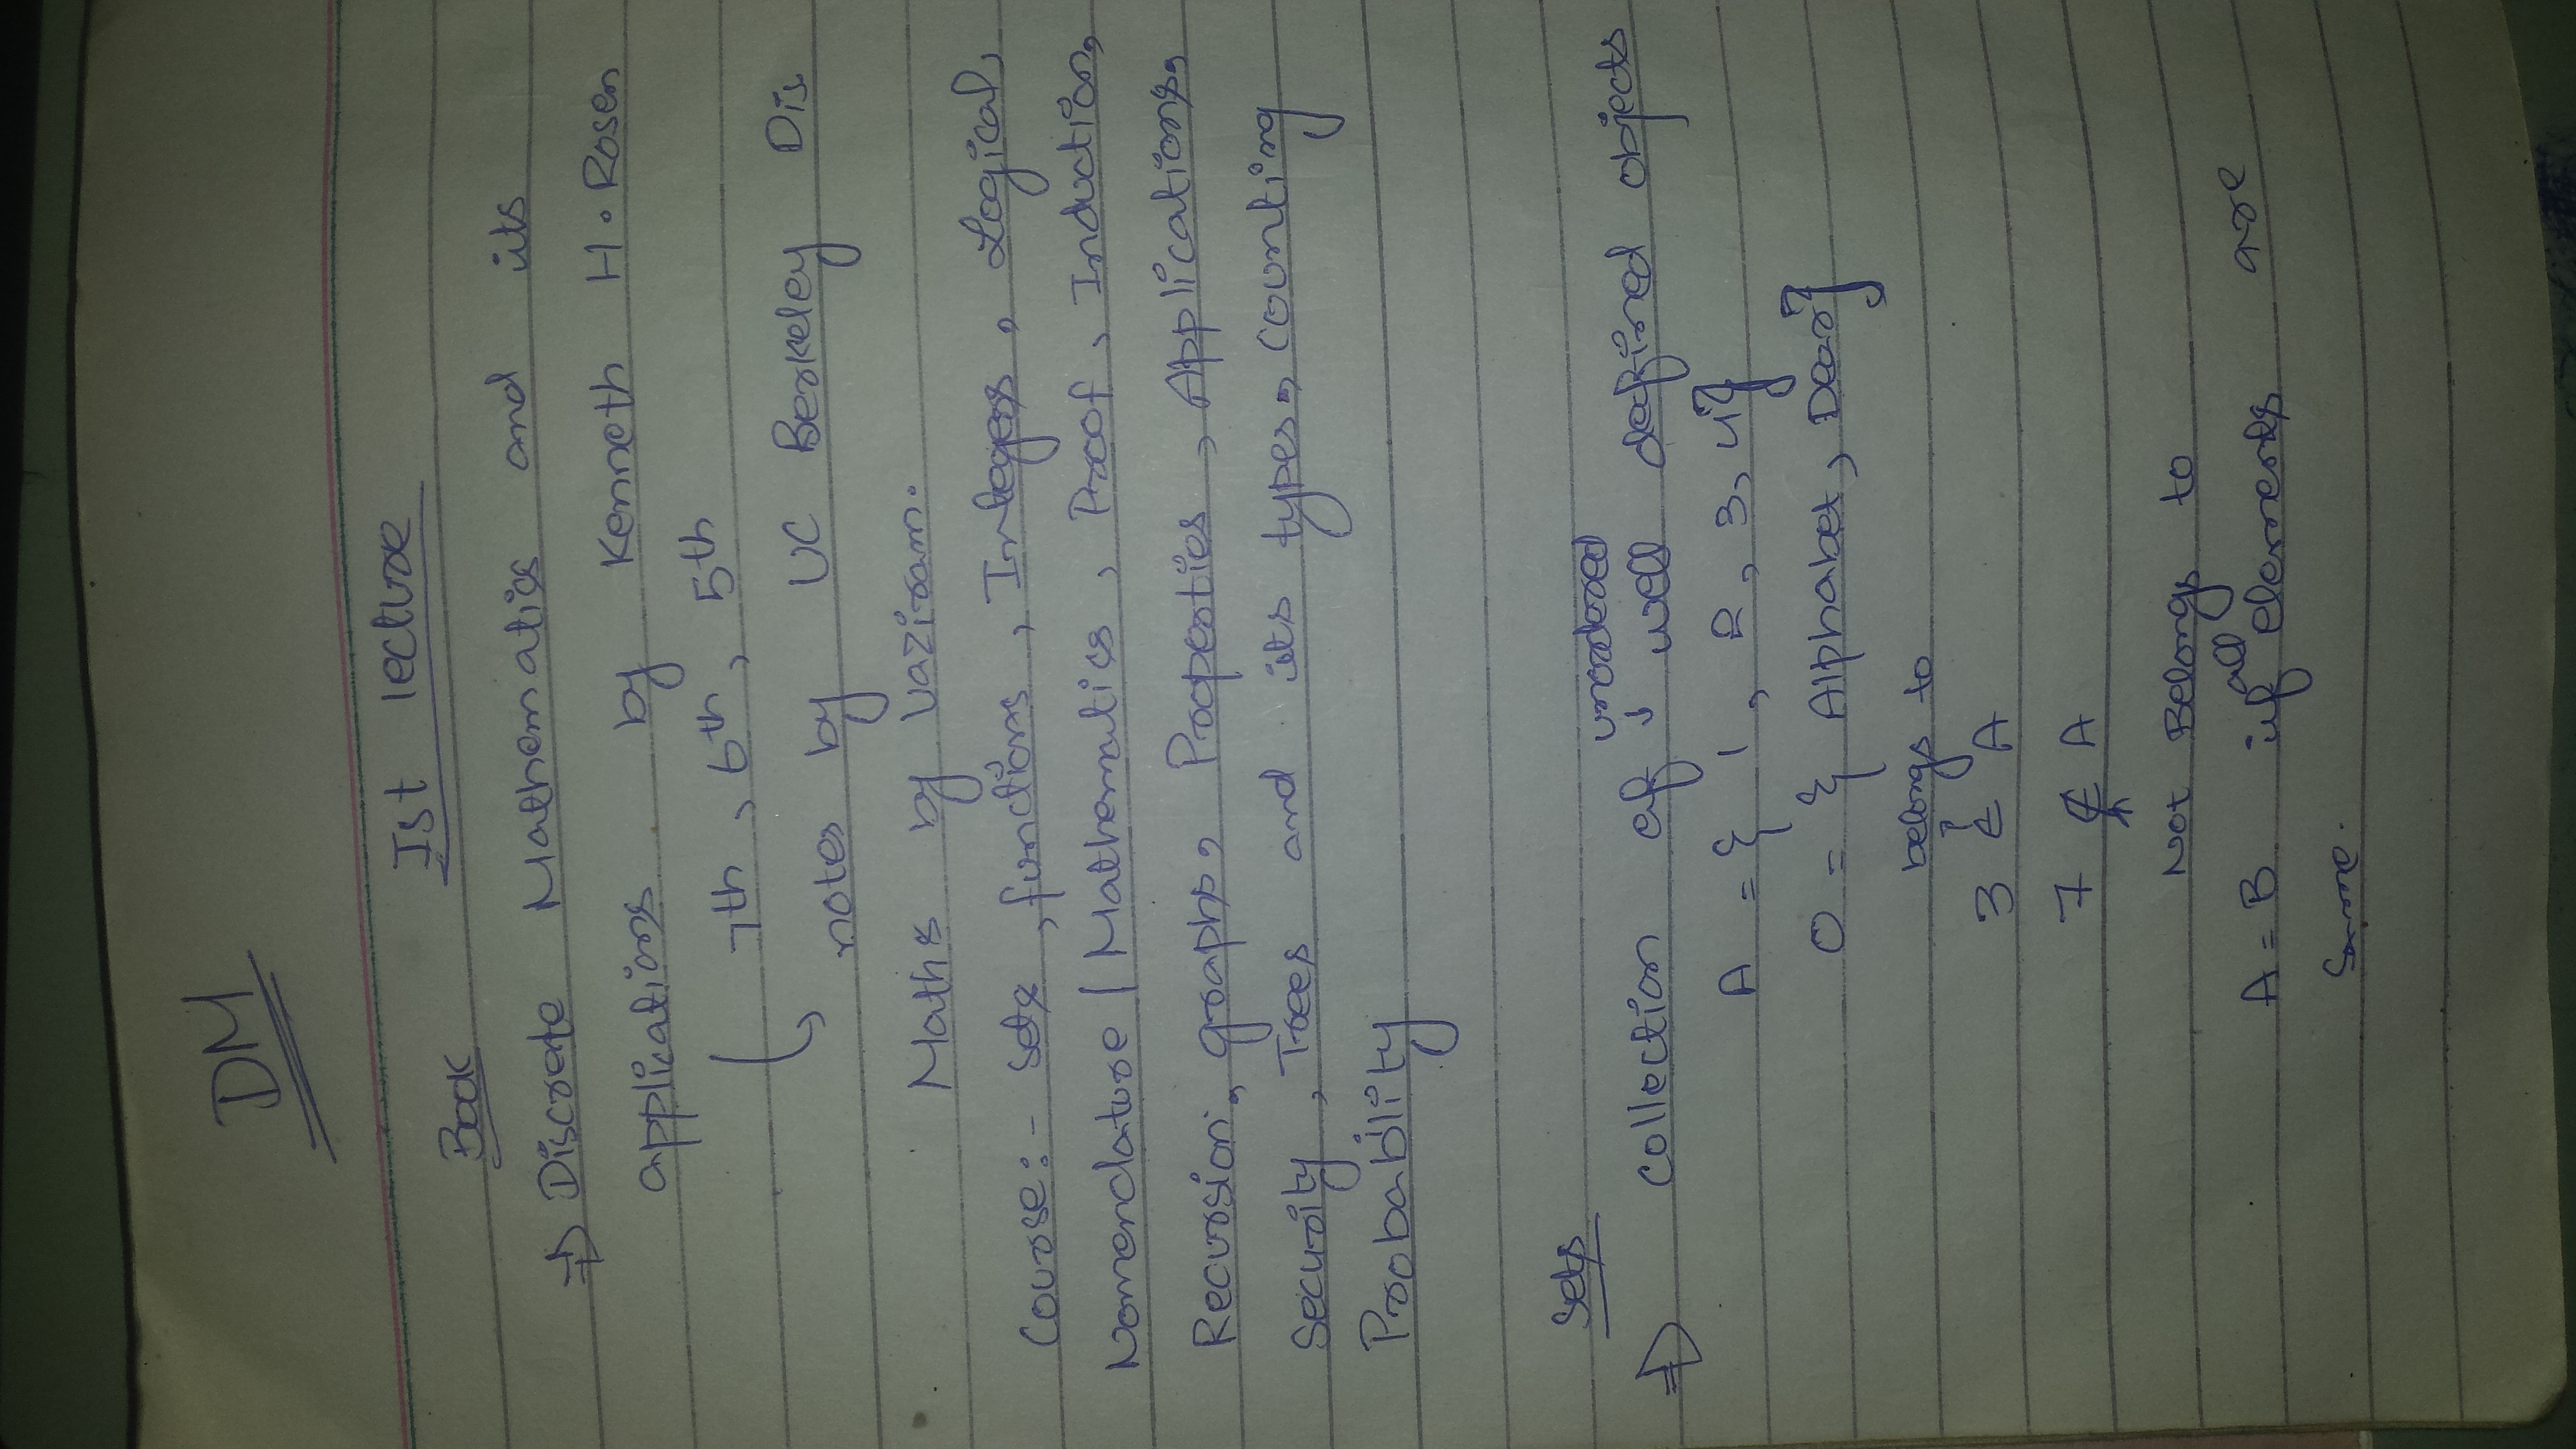 DM
Ist lecture
Book
⇒ Discrete Mathematics and its
applications by Kenneth H. Rosen
7th, 6th, 5th
notes by UC Berkeley Dis
Maths by Vaziram.
Course:- sets, functions, Integers, Logical,
Nomenclature / Mathematics, Proof, Induction,
Recursion, graphs, Properties, Applications,
Security, Trees and its types, counting
Probability
Sets
unordered
⇒ collection of ↓ well defined objects
A = { 1, 2, 3, 4}
O = { Alphabet, Dear}
belongs to
↑
3 ∈ A
7 ∉ A
↑
Not Belongs to
all
A = B if elements are
Same.